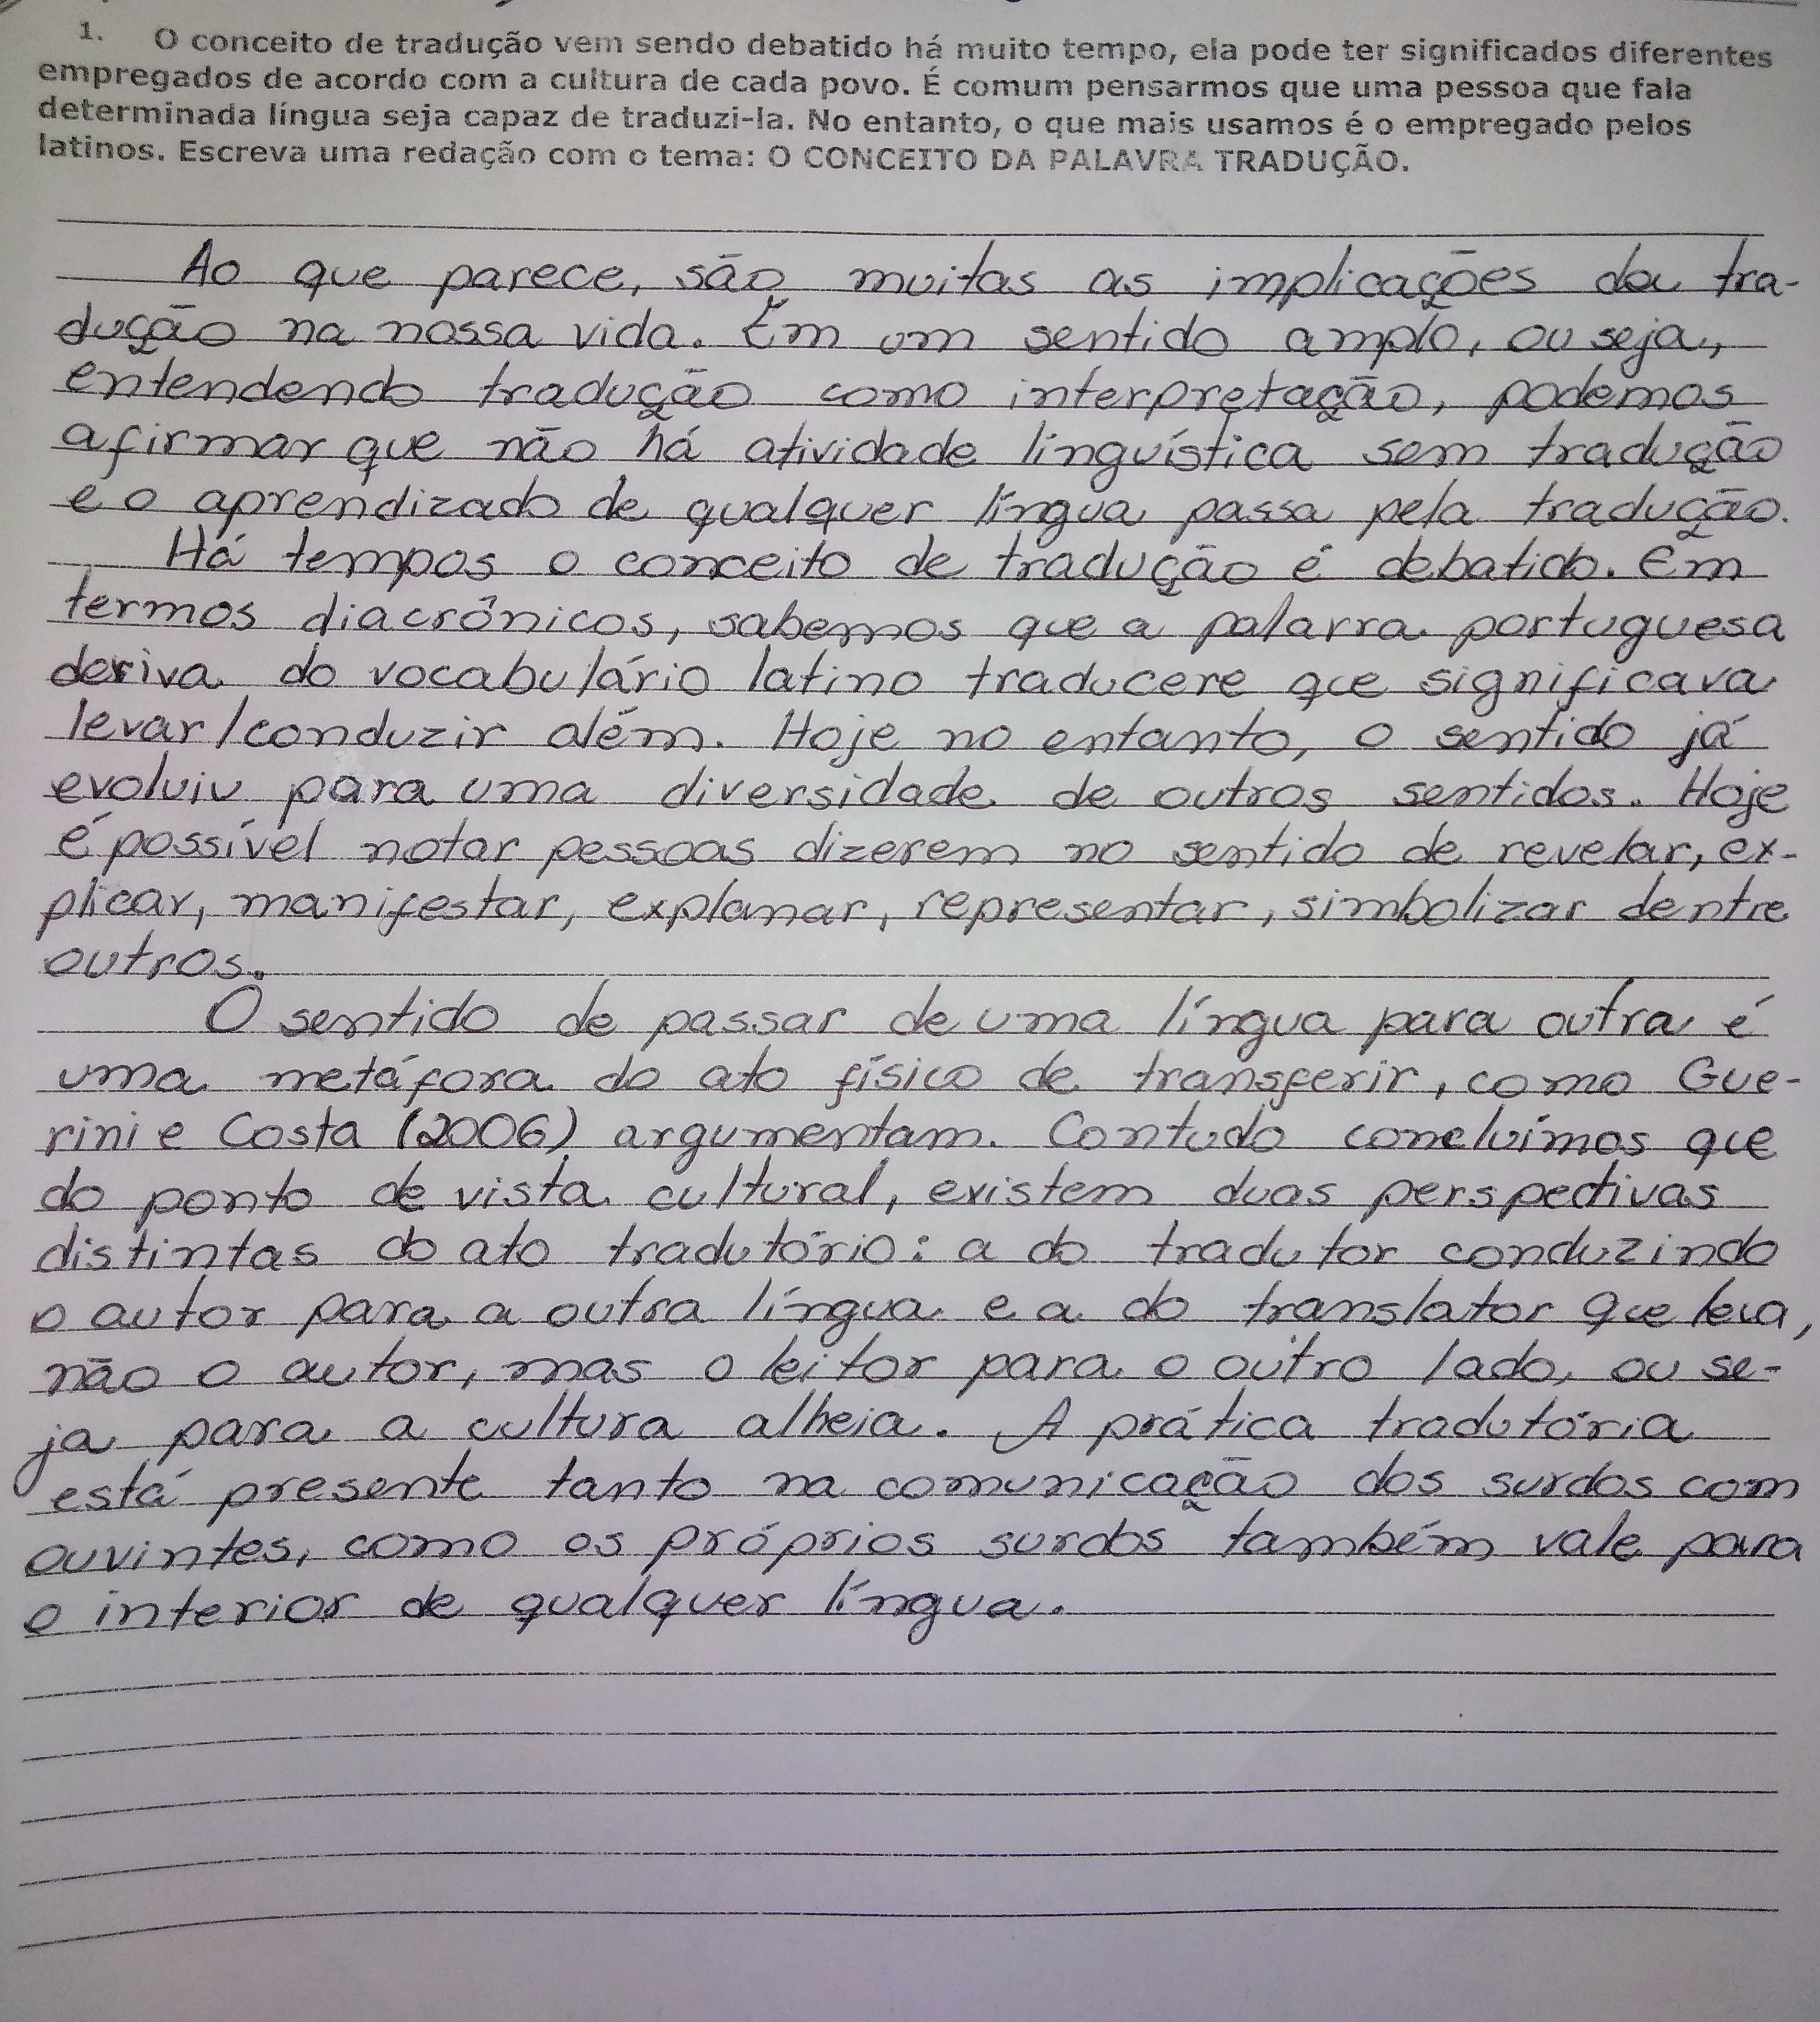 1. O conceito de tradução vem sendo debatido há muito tempo, ela pode ter significados diferentes
empregados de acordo com a cultura de cada povo. É comum pensarmos que uma pessoa que fala
determinada língua seja capaz de traduzi-la. No entanto, o que mais usamos é o empregado pelos
latinos. Escreva uma redação com o tema: O CONCEITO DA PALAVRA TRADUÇÃO.
Ao que parece, são muitas as implicações da tra-
dução na nossa vida. Em um sentido amplo, ou seja,
entendendo tradução como interpretação, podemos
afirmar que não há atividade linguística sem tradução
e o aprendizado de qualquer língua passa pela tradução.
Há tempos o conceito de tradução é debatido. Em
termos diacrônicos, sabemos que a palavra portuguesa
deriva do vocabulário latino traducere que significava
levar/conduzir além. Hoje no entanto, o sentido já
evoluiu para uma diversidade de outros sentidos. Hoje
é possível notar pessoas dizerem no sentido de revelar, ex-
plicar, manifestar, explanar, representar, simbolizar dentre
outros.
O sentido de passar de uma língua para outra é
uma metáfora do ato físico de transferir, como Gue-
rini e Costa (2006) argumentam. Contudo concluímos que
do ponto de vista cultural, existem duas perspectivas
distintas do ato tradutório: a do tradutor conduzindo
o autor para a outra língua e a do translator que leva,
não o autor, mas o leitor para o outro lado, ou se-
ja para a cultura alheia. A prática tradutória
está presente tanto na comunicação dos surdos com
ouvintes, como os próprios surdos também vale para
o interior de qualquer língua.